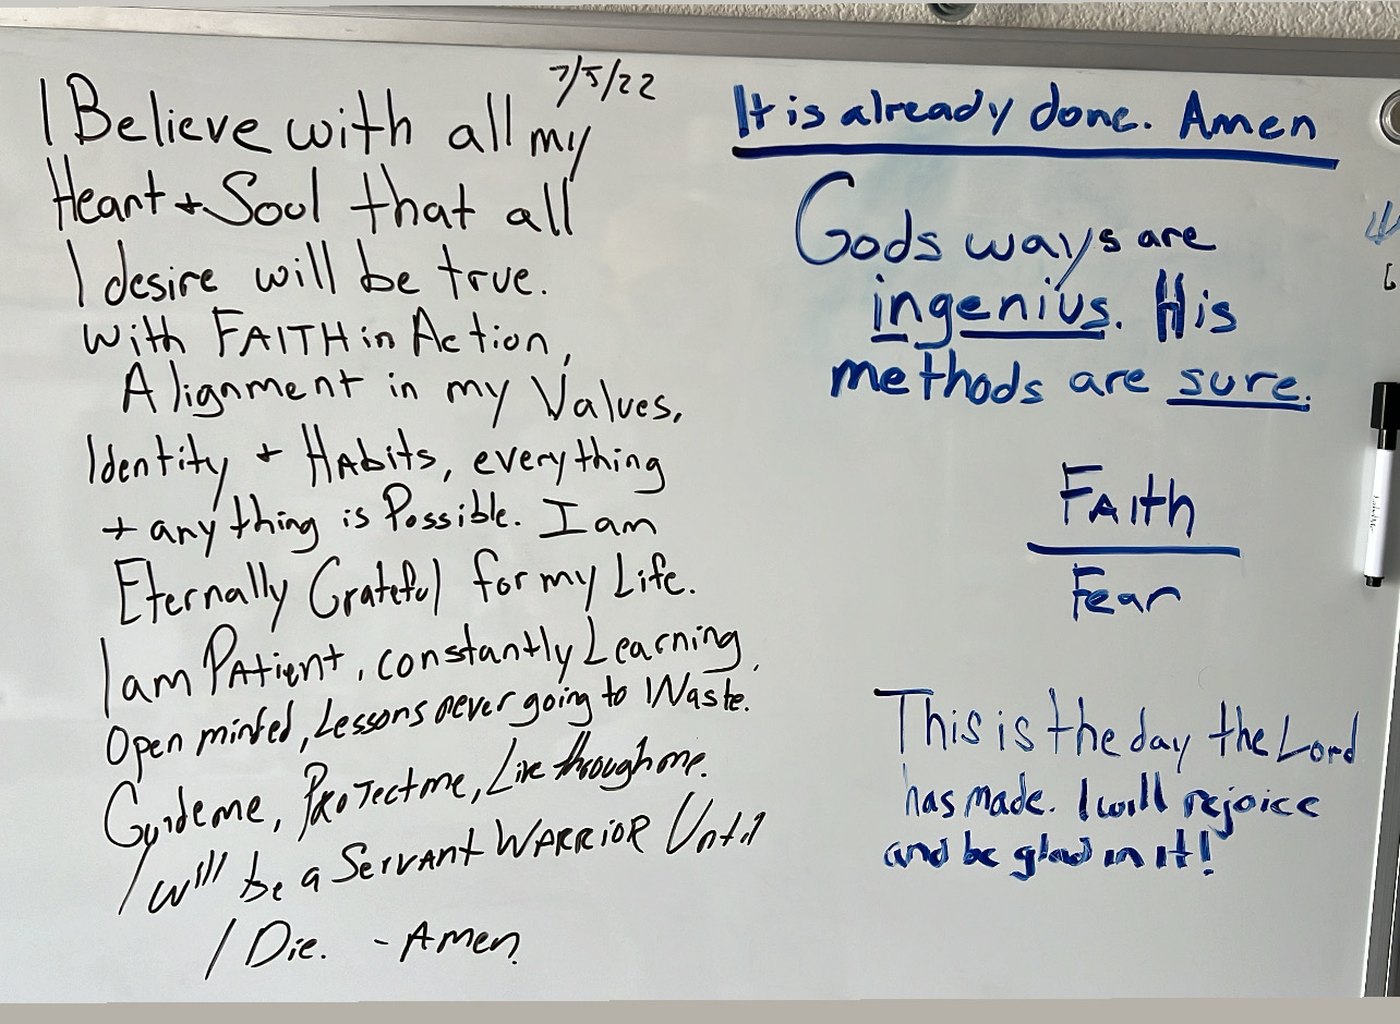 7/5/22
I Believe with all my
Heart + Soul that all
I desire will be true.
With FAITH in Action,
Alignment in my Values,
Identity + HAbits, everything
+ anything is Possible. I am
Eternally Grateful for my Life.
I am PAtient, constantly Learning,
Open minded, Lessons never going to Waste.
Guide me, PRoTect me, Live through me.
I will be a ServANt WARRioR Until
I Die. - Amen
It is already done. Amen
Gods ways are
ingenius. His
methods are sure.
FAIth
Fear
This is the day the Lord
has made. I will rejoice
and be glad in it!